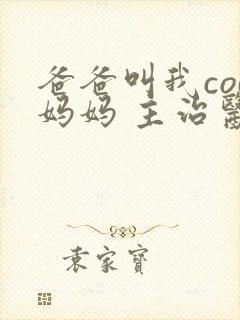 爸爸叫我co
妈妈 主治醫
袁家寶